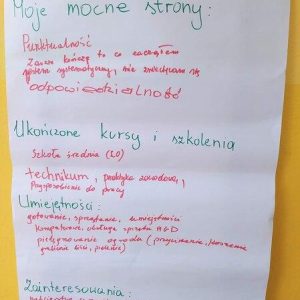 Moje mocne strony:
Punktualność
Zawsze kończę to co zacząłem
jestem systematyczny, nie zniechęcam się
odpowiedzialność
Ukończone kursy i szkolenia
Szkoła średnia (LO)
technikum, praktyka zawodowa,
Przysposobienie do pracy
Umiejętności:
gotowanie, sprzątanie, umiejętności
komputerowe, obsługa sprzętu AGD
pielęgnowanie ogrodu (przycinanie, koszenie
grabienie liści, pielenie)
Zainteresowania: